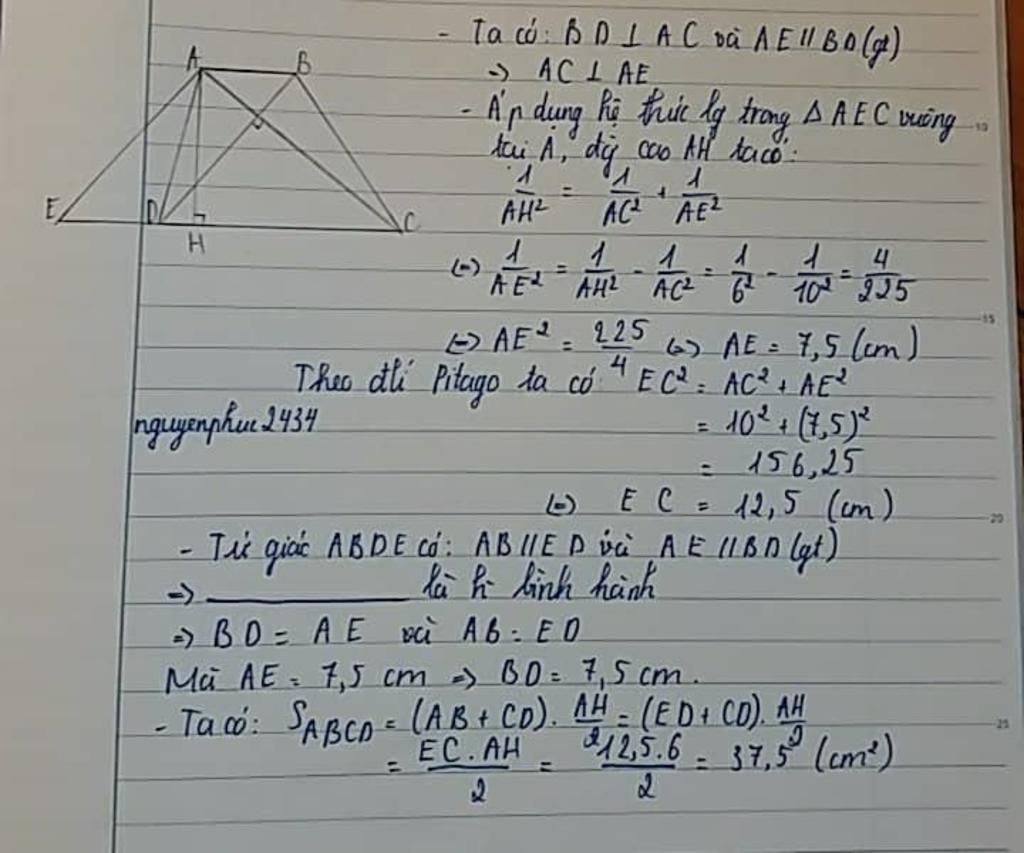 A B
E D H C
- Ta có: BD ⊥ AC và AE // BD (gt)
=> AC ⊥ AE
- Áp dụng hệ thức lg trong Δ AEC vuông
tại A, đg cao AH ta có:
1/AH² = 1/AC² + 1/AE²
(=) 1/AE² = 1/AH² - 1/AC² = 1/6² - 1/10² = 4/225
(=) AE² = 225/4 (=) AE = 7,5 (cm)
Theo đlí Pitago ta có EC² = AC² + AE²
nguyenphuc2434
= 10² + (7,5)²
= 156,25
(=) EC = 12,5 (cm)
- Tứ giác ABDE có: AB // ED và AE // BD (gt)
=> ________ là h bình hành
=> BD = AE và AB = ED
Mà AE = 7,5 cm => BD = 7,5 cm.
- Ta có: S_ABCD = (AB + CD) . AH/2 = (ED + CD) . AH/2
= EC.AH/2 = 12,5.6/2 = 37,5 (cm²)
10
15
20
25